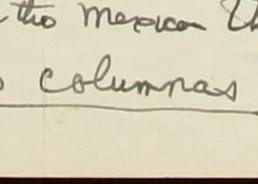 the mexican
columnas